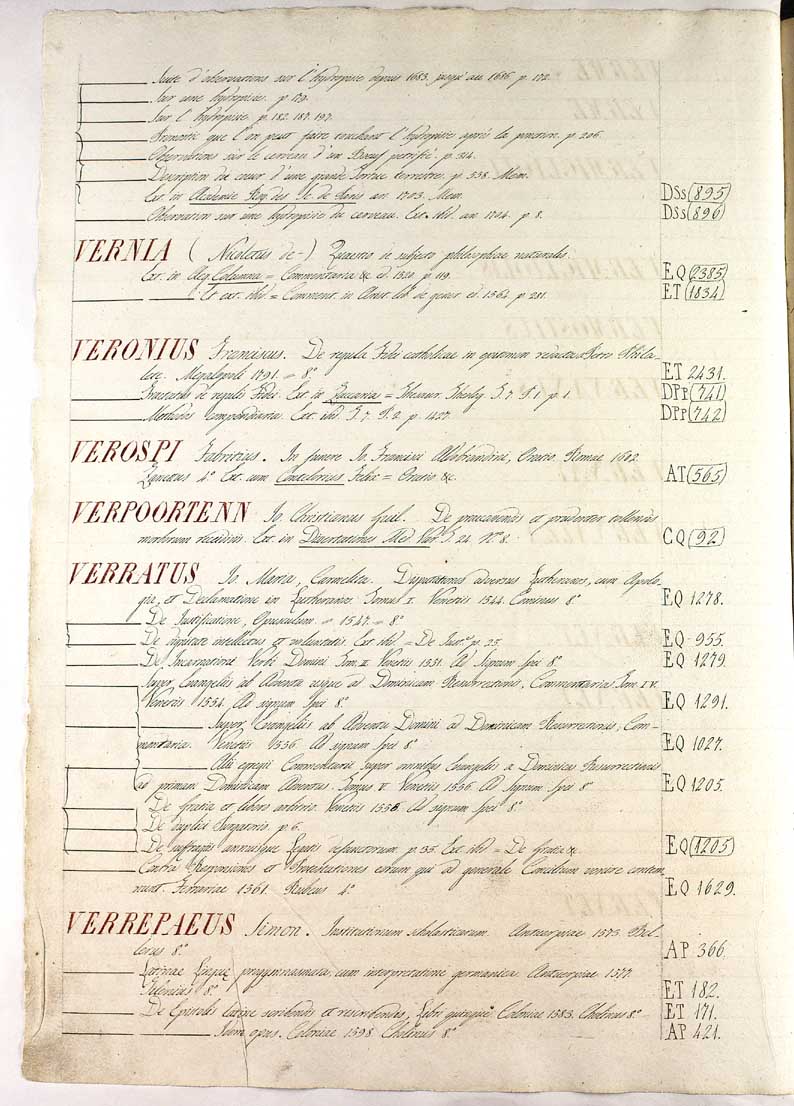 Suite d'observations sur l'hydropisie depuis 1683. jusqu'au 1686. p. 172.
Sur une hydropisie. p. 179.
Sur l'hydropisie. p. 182. 187. 197.
que l'on peut faire touchant l'hydropisie après la ponction. p. 206.
Observations sur le cerveau d'un Boeuf petrifié. p. 314.
Description du coeur d'une grande Tortue terrestre. p. 338. Mem.
Ext. in Academie Roy. des Sc. de Paris an 1703. Mem. DSs 895
Observation sur une hydropisie du cerveau. Ext. ibid. an 1704. p. 8. DSs 896
VERNIA (Nicoletus de-) Quaestio de subjecto philosophiae naturalis.
Ext. in Aeg. Columna = Commentaria &c. ed. 1520. p. 119. EQ 2385
Et ext. ibid = Comment. in Arist. lib. de gener. ed. 1564. p. 281. ET 1834
VERONIUS Franciscus. De regula Fidei catholicae Phila-
lec. Megalopoli 1791. = 8° ET 2431.
Tractatus de regula Fidei. Ext. in Zaccaria = Thesaur. Theolog. T. 7. P. 1. p. 1. DPp 741
Methodus compendiaria. Ext. ibid. T. 7. P. 2. p. 1427. DPp 742
VEROSPI Fabritius. In funere Jo. Francisci Aldobrandini, Oratio. Romae 1602.
Zanettus 4° Ext. cum Felix = Oratio &c. AT 565
VERPOORTENN Jo. Christianus Guil. De praecavendis et prudenter tollendis
morborum recidivis. Ext. in Dissertationes Med. Var. T. 24. N° 8. CQ 92
VERRATUS Jo. Maria, Carmelita. Disputationes adversus Lutheranos, cum Apolo-
gia, et Declamatione in Lutheranos. Tomus I. Venetiis 1544. Cominus 8° EQ 1278.
De Justificatione, Opusculum = 1547. = 8°
De dignitate intellectus et voluntatis. Ext. ibid = De Just.e p. 25. EQ 955.
De Incarnatione Verbi Domini. Tom. II. Venetiis 1551. Ad Signum Spei 8° EQ 1279.
Super Evangeliis ab Adventu usque ad Dominicam Resurrectionis, Commentarius Tom. IV.
Venetiis 1554. Ad signum Spei 8° EQ 1291.
Super Evangeliis ab Adventu Domini ad Dominicam Resurrectionis, Com-
mentaria. Venetiis 1556. Ad signum Spei 8° EQ 1027.
Alii egregii Commentarii super omnibus Evangeliis a Dominica Resurrectionis
ad primam Dominicam Adventus. Tomus V. Venetiis 1556. Ad Signum Spei 8° EQ 1205.
De gratia et libero arbitrio. Venetiis 1556. Ad signum Spei 8°
De duplici Purgatorio. p. 6.
De suffragiis annuisque Legatis defunctorum. p. 35. Ext. ibid = De gratia &c. EQ 1205
Contra Responsiones et Protestationes eorum qui ad generale Concilium venire contem-
nunt. Ferrariae 1561. Rubeus 4° EQ 1629.
VERREPAEUS Simon. Institutionum scholasticarum. Antuerpiae 1573. Bel-
lerus 8° AP 366.
Latinae Linguae progymnasmata, cum interpretatione germanica. Antuerpiae 1577.
8° ET 182.
De Epistolis latine scribendis et rescribendis, Libri quinque. Coloniae 1583. Cholinus 8° ET 171.
Idem opus. Coloniae 1598. Cholinus 8° AP 421.